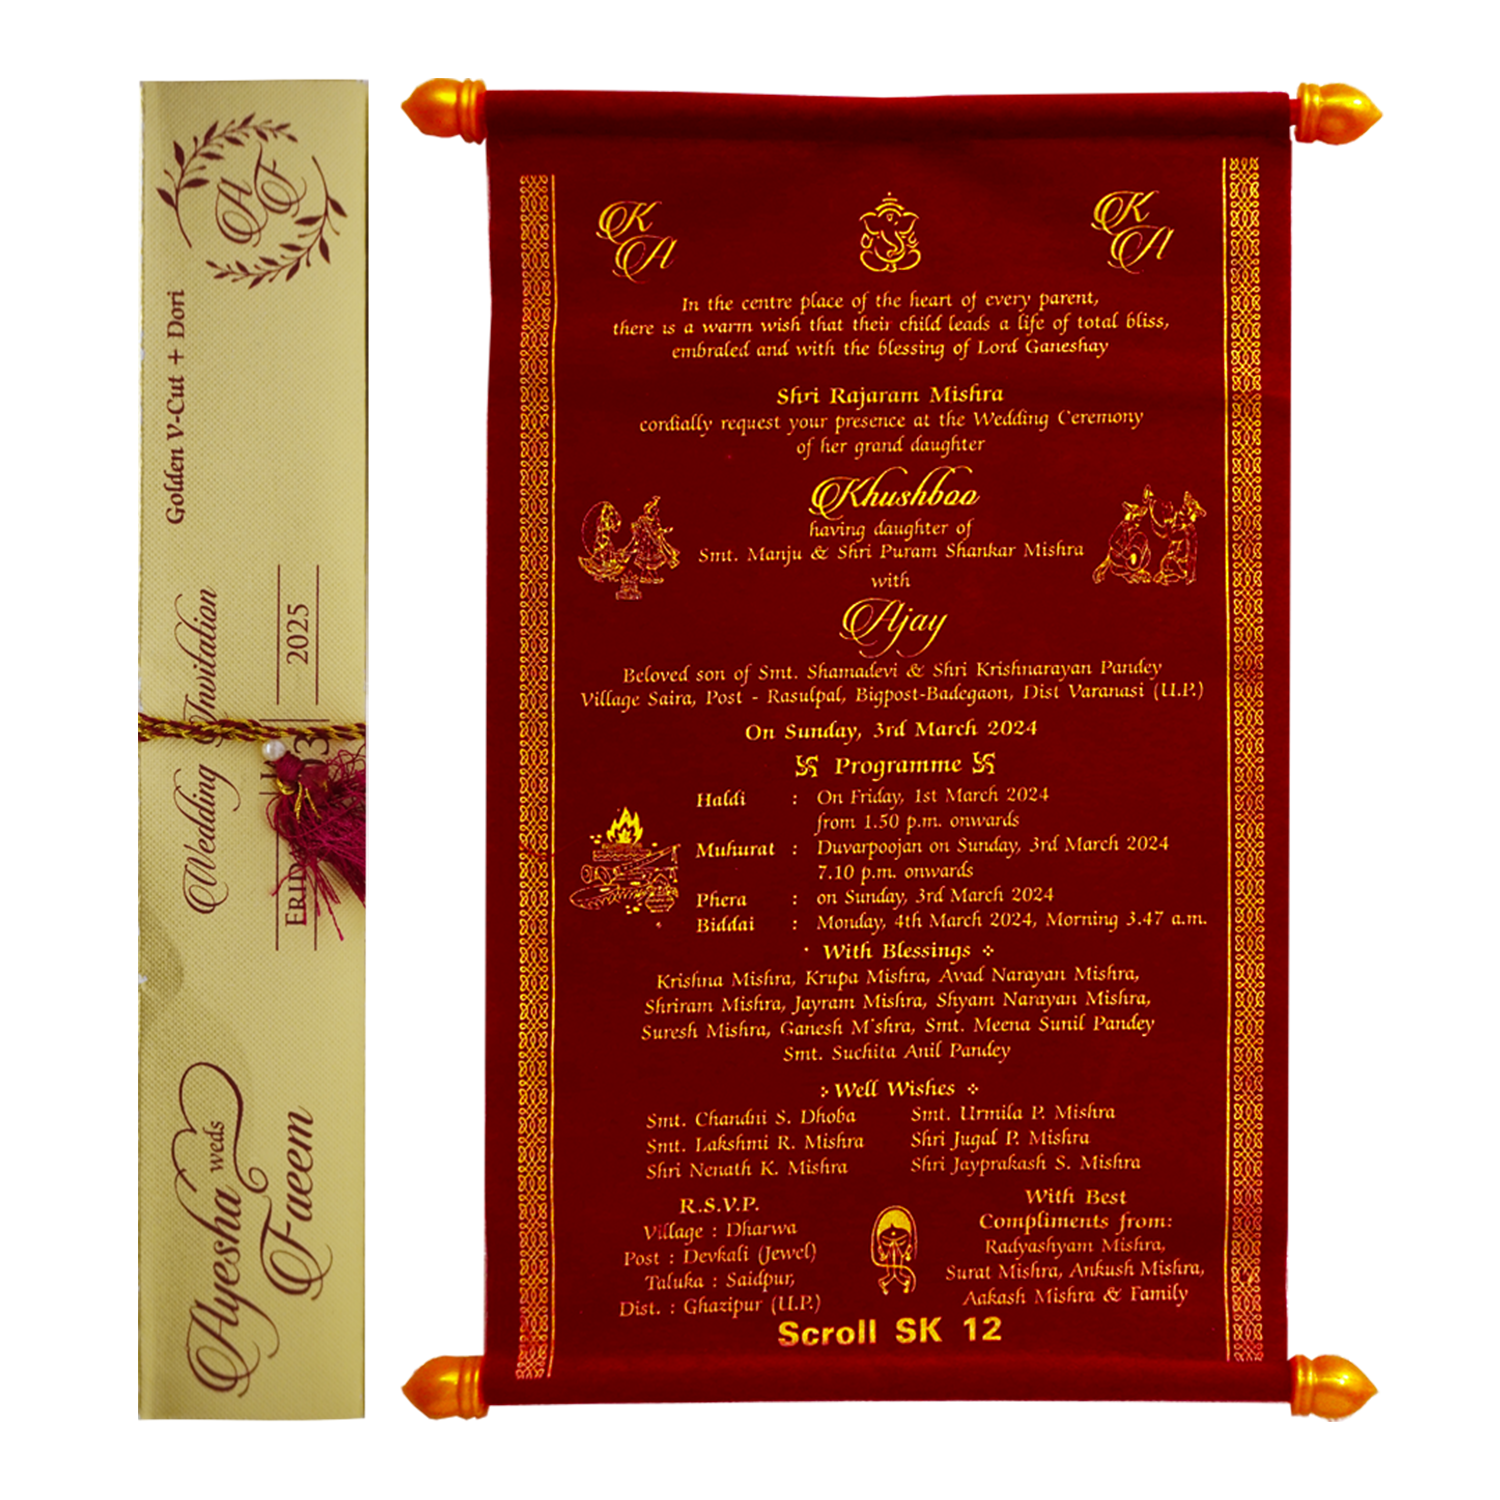 A F
Golden V-Cut + Dori
Wedding Invitation
2025
Ayesha weds
Faeem
K A
K A
In the centre place of the heart of every parent,
there is a warm wish that their child leads a life of total bliss,
embraled and with the blessing of Lord Ganeshay
Shri Rajaram Mishra
cordially request your presence at the Wedding Ceremony
of her grand daughter
Khushboo
having daughter of
Smt. Manju & Shri Puram Shankar Mishra
with
Ajay
Beloved son of Smt. Shamadevi & Shri Krishnarayan Pandey
Village Saira, Post - Rasulpal, Bigpost-Badegaon, Dist Varanasi (U.P.)
On Sunday, 3rd March 2024
卐 Programme 卐
Haldi : On Friday, 1st March 2024
from 1.50 p.m. onwards
Muhurat : Duvarpoojan on Sunday, 3rd March 2024
7.10 p.m. onwards
Phera : on Sunday, 3rd March 2024
Biddai : Monday, 4th March 2024, Morning 3.47 a.m.
With Blessings
Krishna Mishra, Krupa Mishra, Avad Narayan Mishra,
Shriram Mishra, Jayram Mishra, Shyam Narayan Mishra,
Suresh Mishra, Ganesh Mishra, Smt. Meena Sunil Pandey
Smt. Suchita Anil Pandey
Well Wishes
Smt. Chandni S. Dhoba
Smt. Lakshmi R. Mishra
Shri Nenath K. Mishra
Smt. Urmila P. Mishra
Shri Jugal P. Mishra
Shri Jayprakash S. Mishra
R.S.V.P.
Village : Dharwa
Post : Devkali (Jewel)
Taluka : Saidpur,
Dist. : Ghazipur (U.P.)
With Best
Compliments from:
Radyashyam Mishra,
Surat Mishra, Ankush Mishra,
Aakash Mishra & Family
Scroll SK 12